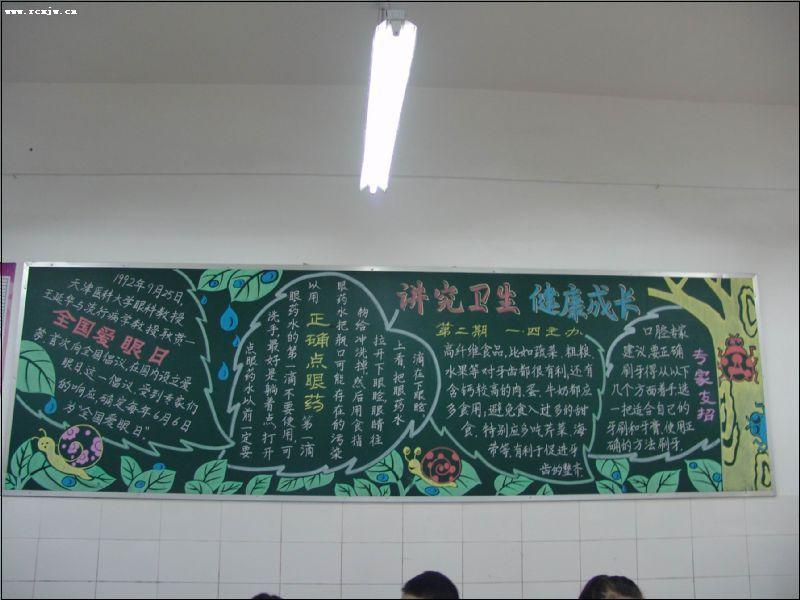 www.rcxjw.cn
讲究卫生 健康成长
第二期 一.四主办
1992年9月25日,
天津医科大学眼科教授
王延华与流行病学教授孙贵一
全国爱眼日
等,首次向全国倡议,在国内设立爱
眼日这一倡议,受到专家们
的响应,确定每年6月6日
为“全国爱眼日”.
点眼药水以前一定要
洗手,最好是躺着点.打开
眼药水的第一滴不要使用,可
以用
正确点眼药
第一滴
眼药水把瓶口可能存在的污染
物给冲洗掉,然后用食指
拉开下眼睑,眼睛往
上看,把眼药水
滴在下眼睑
高纤维食品,比如蔬菜、粗粮
水果等对牙齿都很有利,还有
含钙较高的肉、蛋、牛奶都应
多食用,避免食入过多的甜
食.特别应多吃芹菜、海
带等,有利于促进牙
齿的整齐.
口腔专家
建议,要正确
刷牙得从以下
几个方面着手:选
一把适合自己的
牙刷和牙膏,使用正
确的方法刷牙.
专家支招